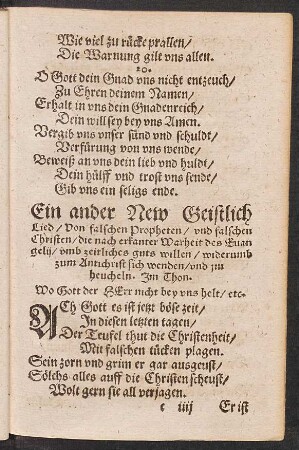 Wie viel zu rücke prallen/
Die Warnung gilt vns allen.
10.
O Gott dein Gnad vns nicht entzeuch/
Zu Ehren deinem Namen/
Erhalt in vns dein Gnadenreich/
Dein will sey bey vns Amen.
Vergib vns vnser sünd vnd schuldt/
Verfürung von vns wende/
Beweiß an vns dein lieb vnd huldt/
Dein hülff vnd trost vns sende/
Gib vns ein seligs ende.
Ein ander New Geistlich
Lied/ Von falschen Propheten/ vnd falschen
Christen/ die nach erkanter Warheit des Euan
gelij/ vmb zeitliches guts willen/ widerumb
zum Antichrist sich wenden/ vnd zu
heucheln. Im Thon.
Wo Gott der HErr nicht bey vns helt/ etc.
ACh Gott es ist jetzt böse zeit/
In diesen letzten tagen/
Der Teufel thut die Christenheit/
Mit falschen tücken plagen.
Sein zorn vnd grim er gar ausgeust/
Sölchs alles auff die Christen scheust/
Wolt gern sie all verjagen.
c iiij Er ist